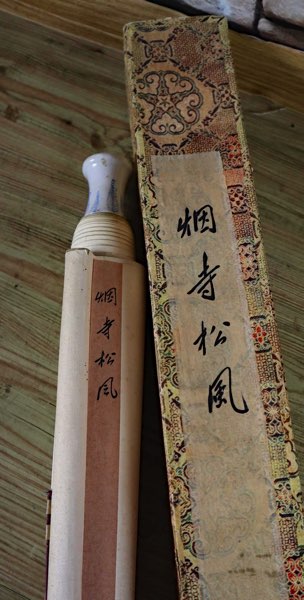 烟寺松风
烟寺松風